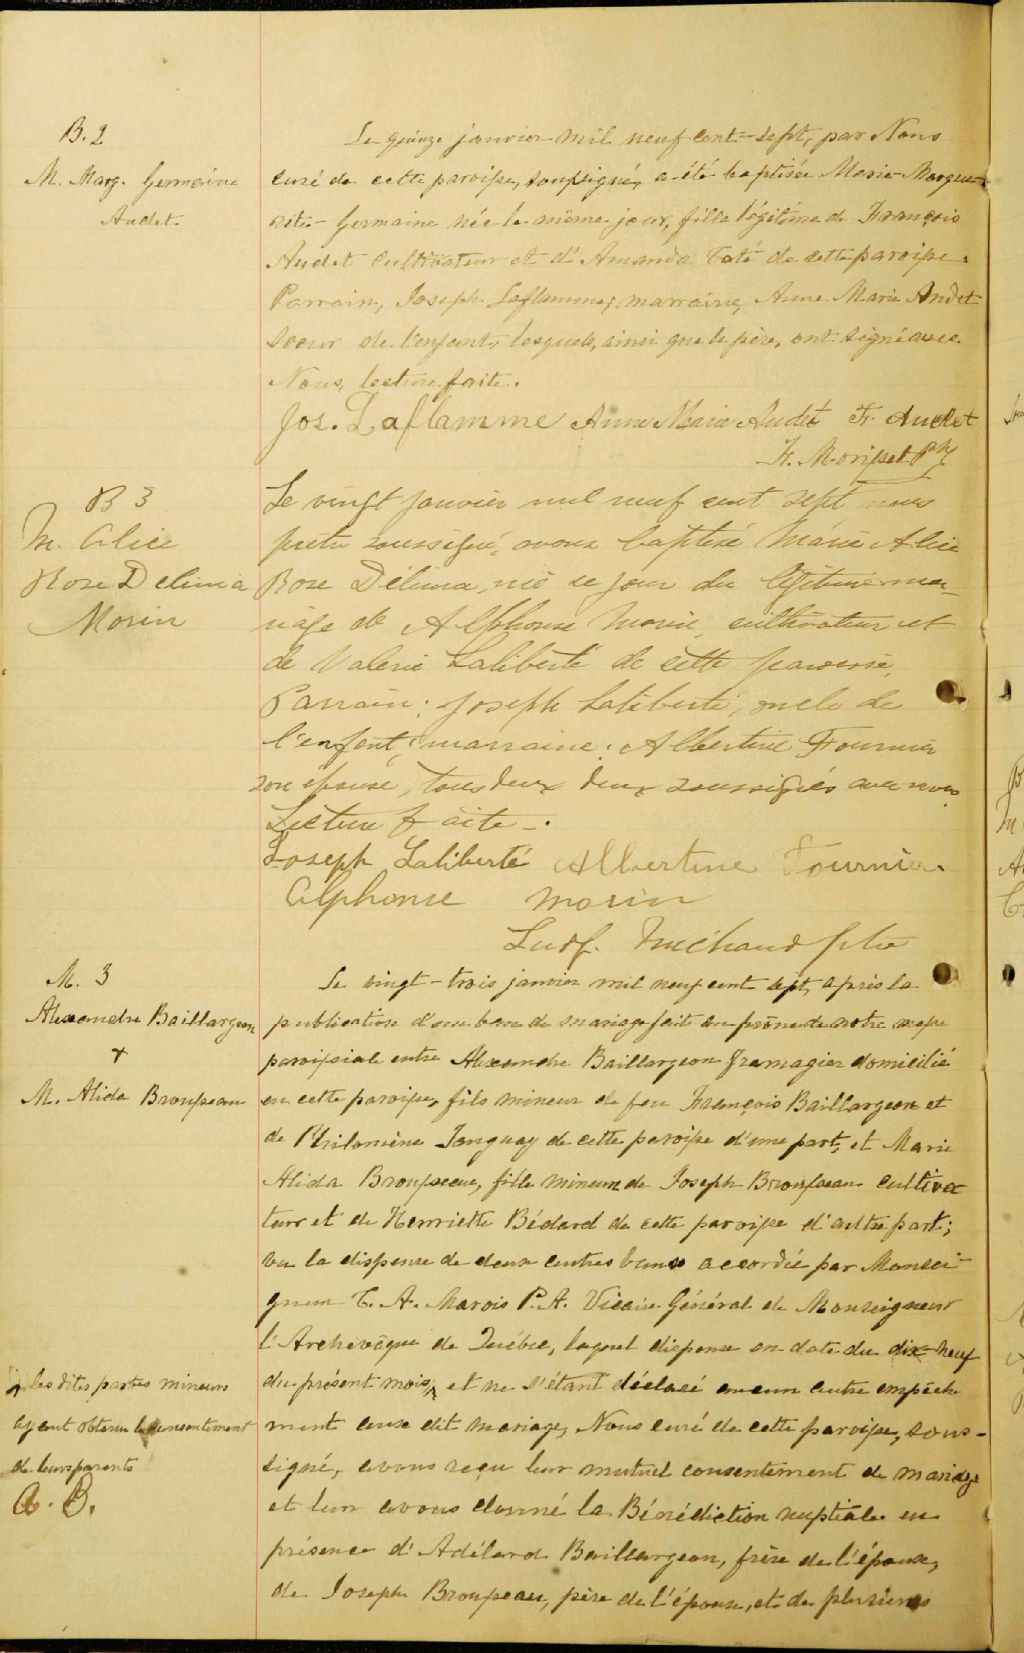 B. 2
M. Marg. Germaine
Audet.
Le quinze janvier mil neuf cent-sept, par Nous
curé de cette paroisse, soussigné, a été baptisée Marie-Margue-
rite-Germaine née le même jour, fille légitime de François
Audet cultivateur et d'Amanda Taté de cette paroisse.
Parrain, Joseph Laflamme; marraine, Anne Marie Audet
sœur de l'enfant, lesquels, ainsi que le père, ont signé avec
Nous, lecture faite.
Jos. Laflamme Anne Marie Audet Fr. Audet
F. Morisset Ptre
B 3
M. Alice
Rose Delima
Morin
Le vingt janvier mil neuf cent sept nous
prêtre soussigné, avons baptisé Marie Alice
Rose Délima, née ce jour du légitime ma-
riage de Alphonse Morin, cultivateur et
de Valérie Laliberté de cette paroisse,
Parrain: Joseph Laliberté, oncle de
l'enfant, marraine: Albertine Fournier
son épouse, tous deux deux soussignés avec nous
Lecture faite-.
Joseph Laliberté Albertine Fournier
Alphonse Morin
Ludf. Michaud ptre
M. 3
Alexandre Baillargeon
+
M. Alida Brousseau
Le vingt-trois janvier mil neuf cent sept, après la
publication d'un ban de mariage fait au prône de notre messe
paroissiale entre Alexandre Baillargeon fromagier domicilié
en cette paroisse, fils mineur de feu François Baillargeon et
de Philomène Tanguay de cette paroisse d'une part, et Marie
Alida Brousseau, fille mineure de Joseph Brousseau cultiva
teur et de Henriette Bédard de cette paroisse d'autre part;
vu la dispense de deux autres bans accordée par Monsei
gneur C. A. Marois P. A. Vicaire Général de Monseigneur
l'Archevêque de Québec, laquel dispense en date du dix-neuf
du présent mois, et ne s'étant déclaré aucun autre empêche
ment au dit mariage, Nous curé de cette paroisse, sous-
signé, avons reçu leur mutuel consentement de mariage
et leur avons donné la Bénédiction nuptiale en
présence d'Adélard Baillargeon, frère de l'époux,
de Joseph Brousseau, père de l'épouse, et de plusieurs
les dites parties mineurs
ayant obtenu le consentement
de leurs parents